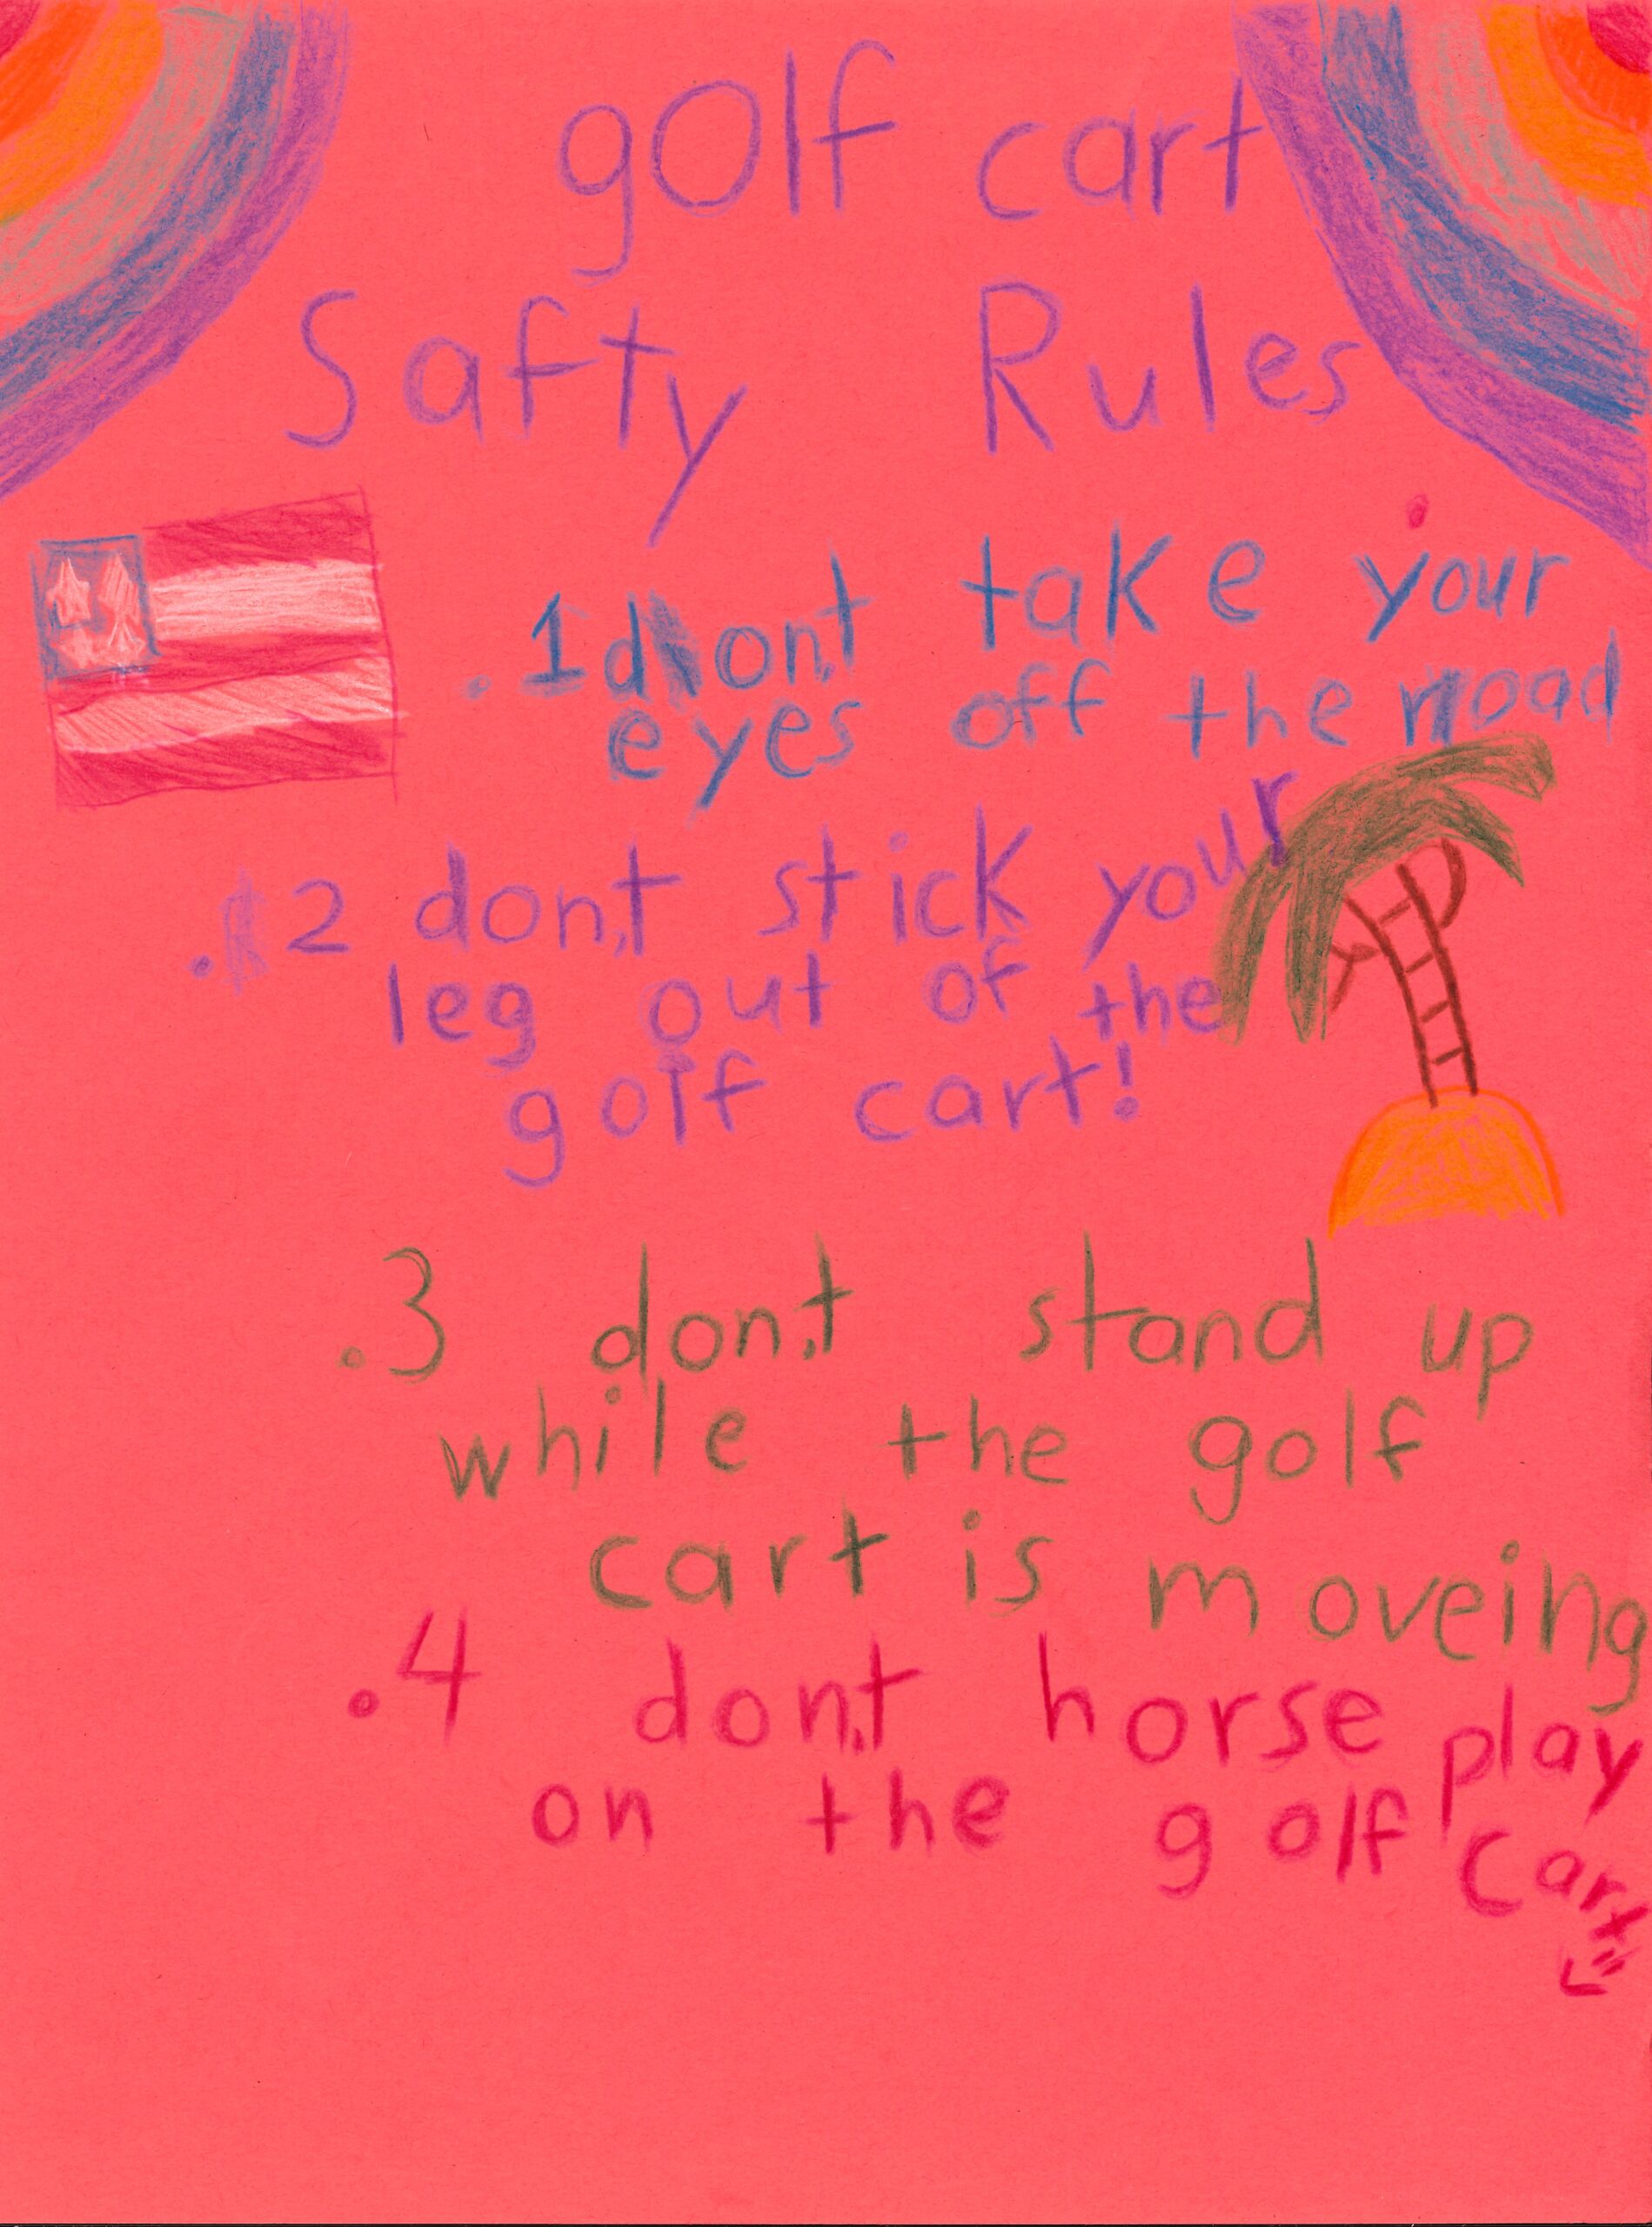 golf cart
Safty Rules
.1 don,t take your
eyes off the road
.2 don,t stick your
leg out of the
golf cart!
.3 don,t stand up
while the golf
cart is moveing
.4 don,t horse play
on the golf cart